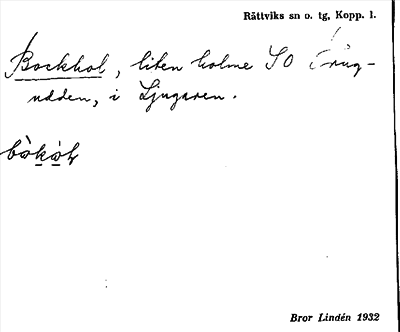 Rättviks sn o. tg, Kopp. l.
Bockhol, liten holme SO
udden, i Ljugaren.
Bror Lindén 1932